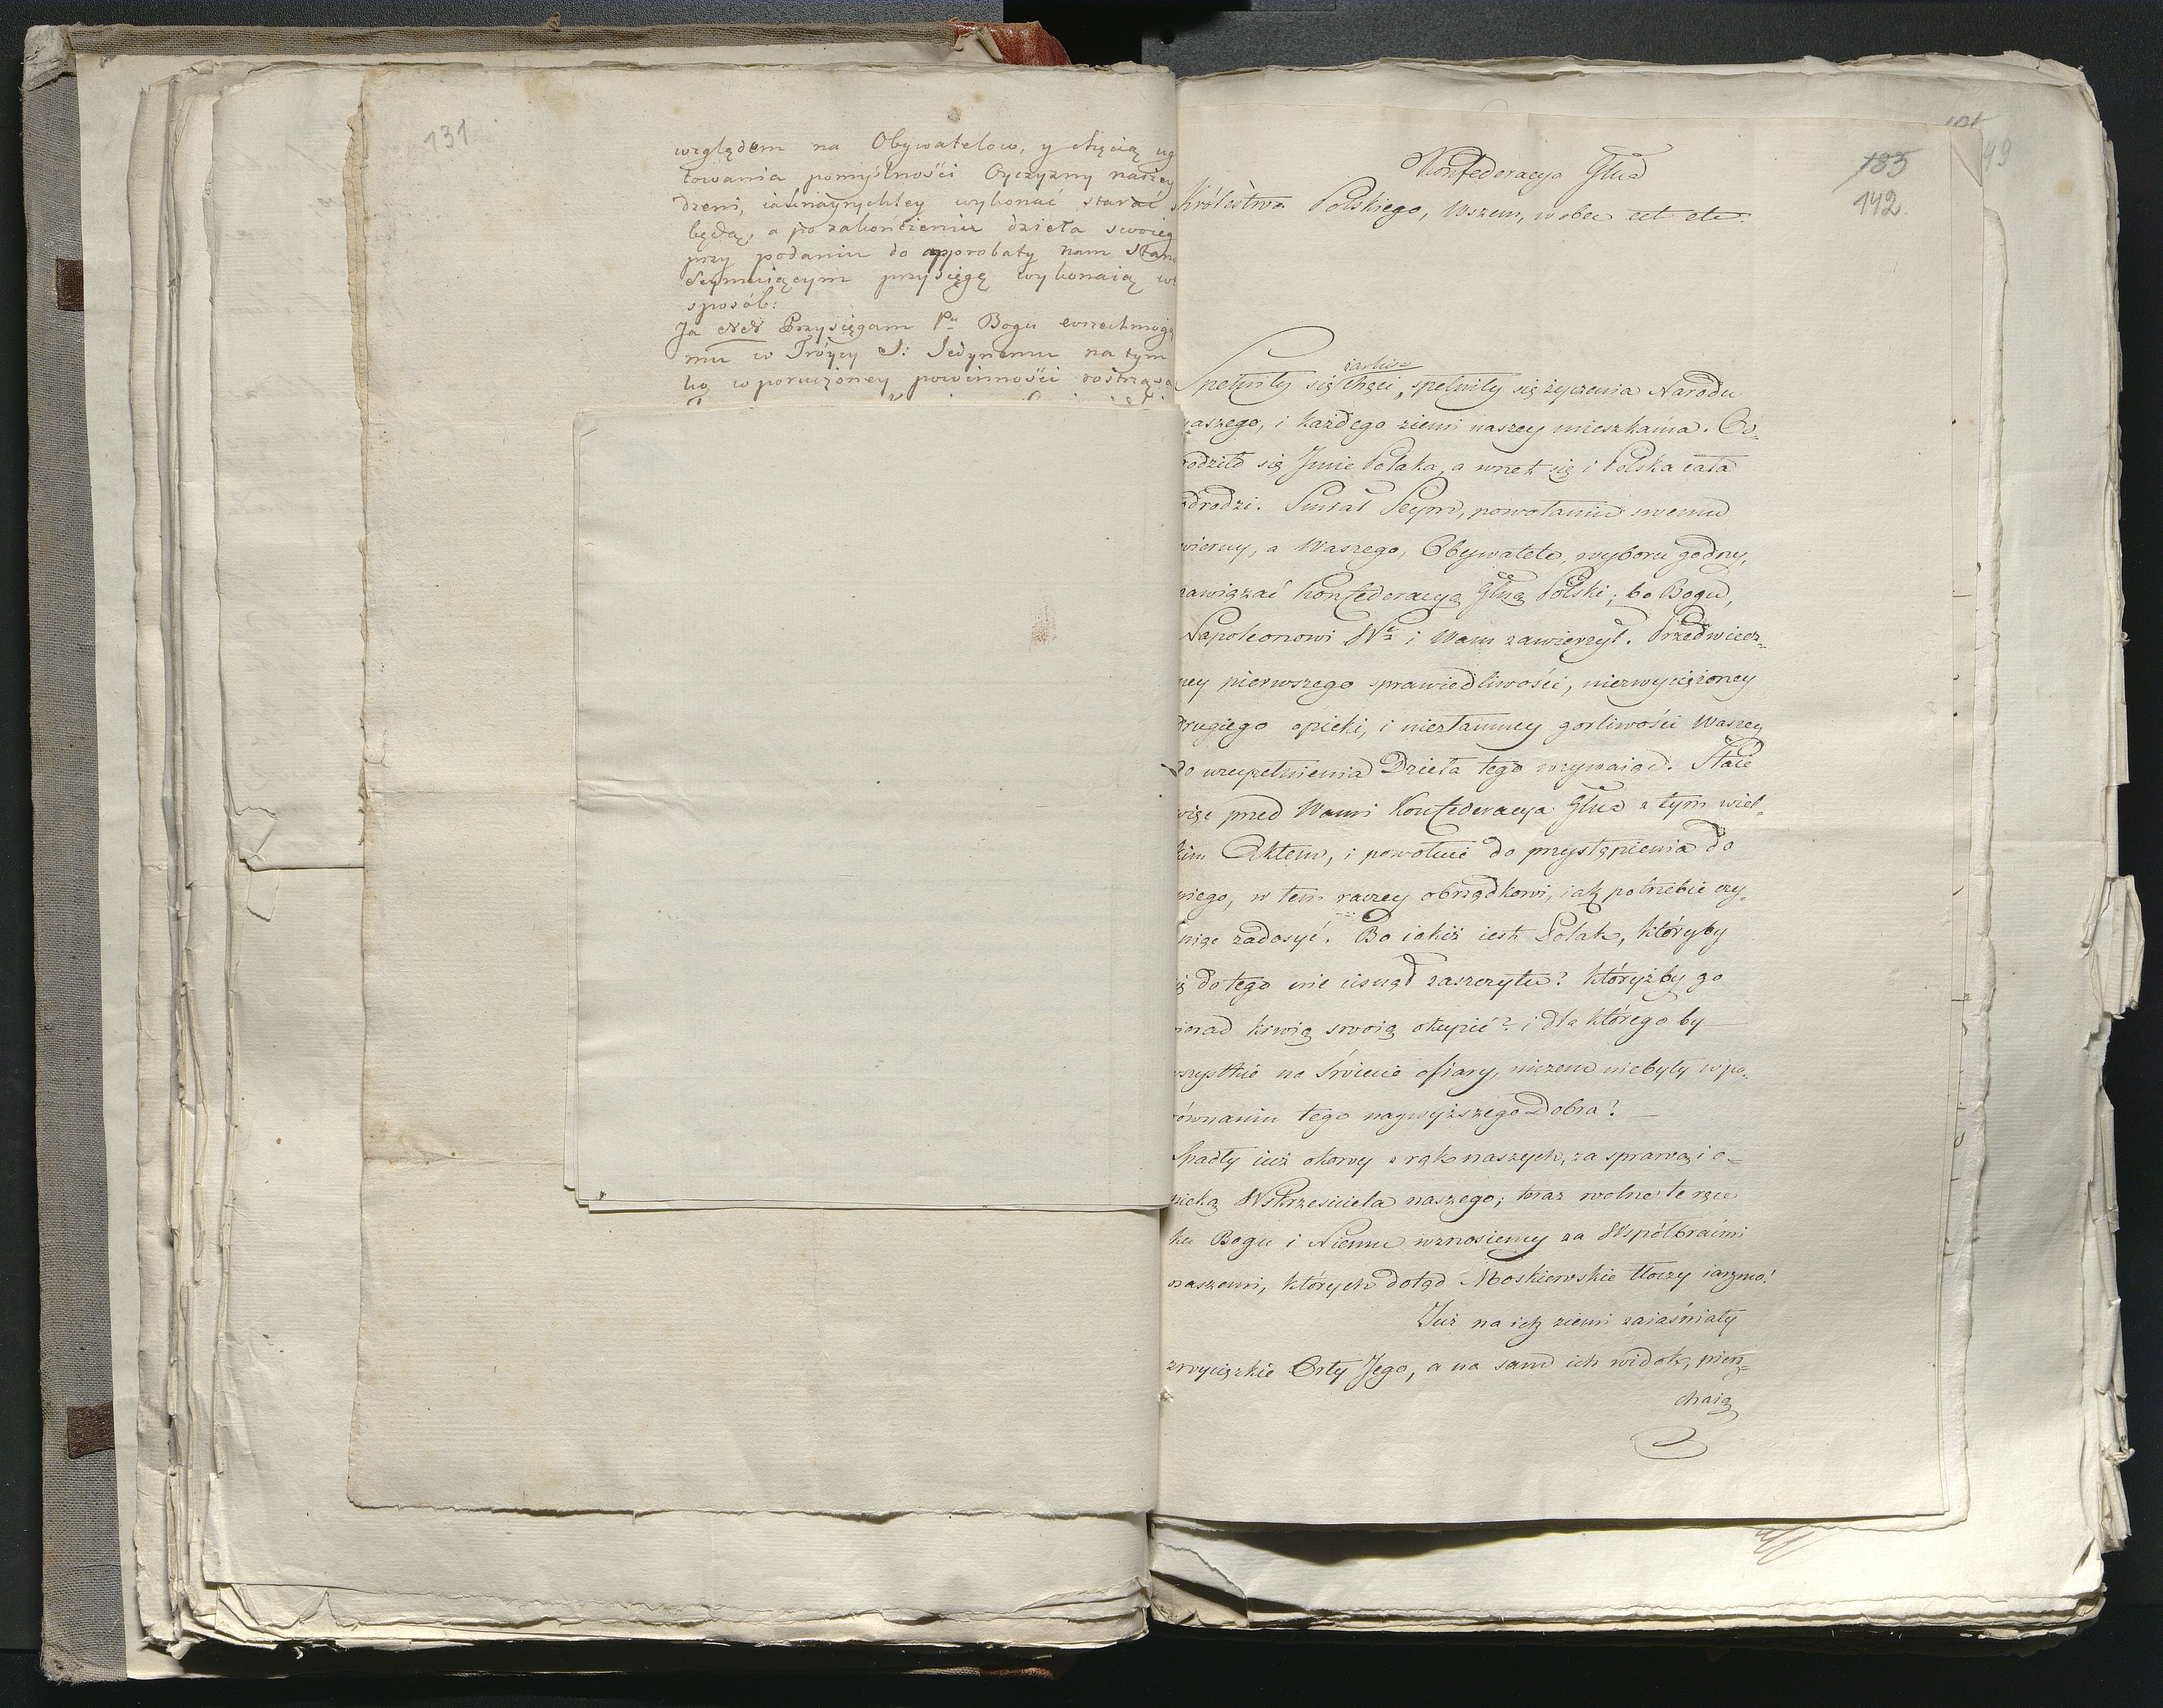 131
względem na Obywatelow, y chęcią ug
towania pomyślności Oyczyzny naszey
dzeni, iaknayrychley wykonać starać
będą, a po zakończeniu dzieła swoieg
przy podaniu do approbaty nam Stan
Seymuiącym przysięgę wykonaią w
sposób:
Ja NN Przysięgam Pu Bogu wszechmogą
mu w Tróycy S: Jedynemu na tym
ko, w poruczoney powinności rostrząsa
185
142
99
Konfederacya Glna
Królestwa Polskiego, Wszem, wobec ect etc:
żarliwe
Spełniły się chęci, spełniły się życzenia Narodu
naszego, i każdego ziemi naszey mieszkańca. Od=
rodziło się Jmie Polaka, a wnet się i Polska cała
odrodzi. Smiał Seym, powołaniu swemu
wierny, a Waszego, Obywatele, wyboru godny,
zawiązać Konfederacyą Glną Polski; bo Bogu,
Napoleonowi Wu i Wam zawierzył. Przedwiecz=
ney pierwszego sprawiedliwości, niezwyciężoney
drugiego opieki, i niezłamney gorliwości Waszey,
do uzupełnienia Dzieła tego wzywaiąc. Staie
więc przed Wami Konfederacya Glna z tym wiel=
kim Aktem, i powołuie do przystąpienia do
niego, w tem raczey obrządkowi, iak potrzebie czy=
niąc zadosyć. Bo iakiż iest Polak, któryby
się do tego nie cisnął zaszczytu? któryżby go
nierad krwią swoią okupić? i dla którego by
wszystkie na Świecie ofiary, niczem niebyły w po=
równaniu tego naywyższego Dobra? —
Spadły iuż okowy z rąk naszych, za sprawą i o=
pieką Wskrzesiciela naszego; teraz wolne te ręce
ku Bogu i Niemu wznosiemy za Współbraćmi
naszemi, których dotąd Moskiewskie tłoczy iarzmo!
Już na ich ziemi zaiaśniały
zwycięzkie Orły Jego, a na sam ich widok, pierz=
chaią